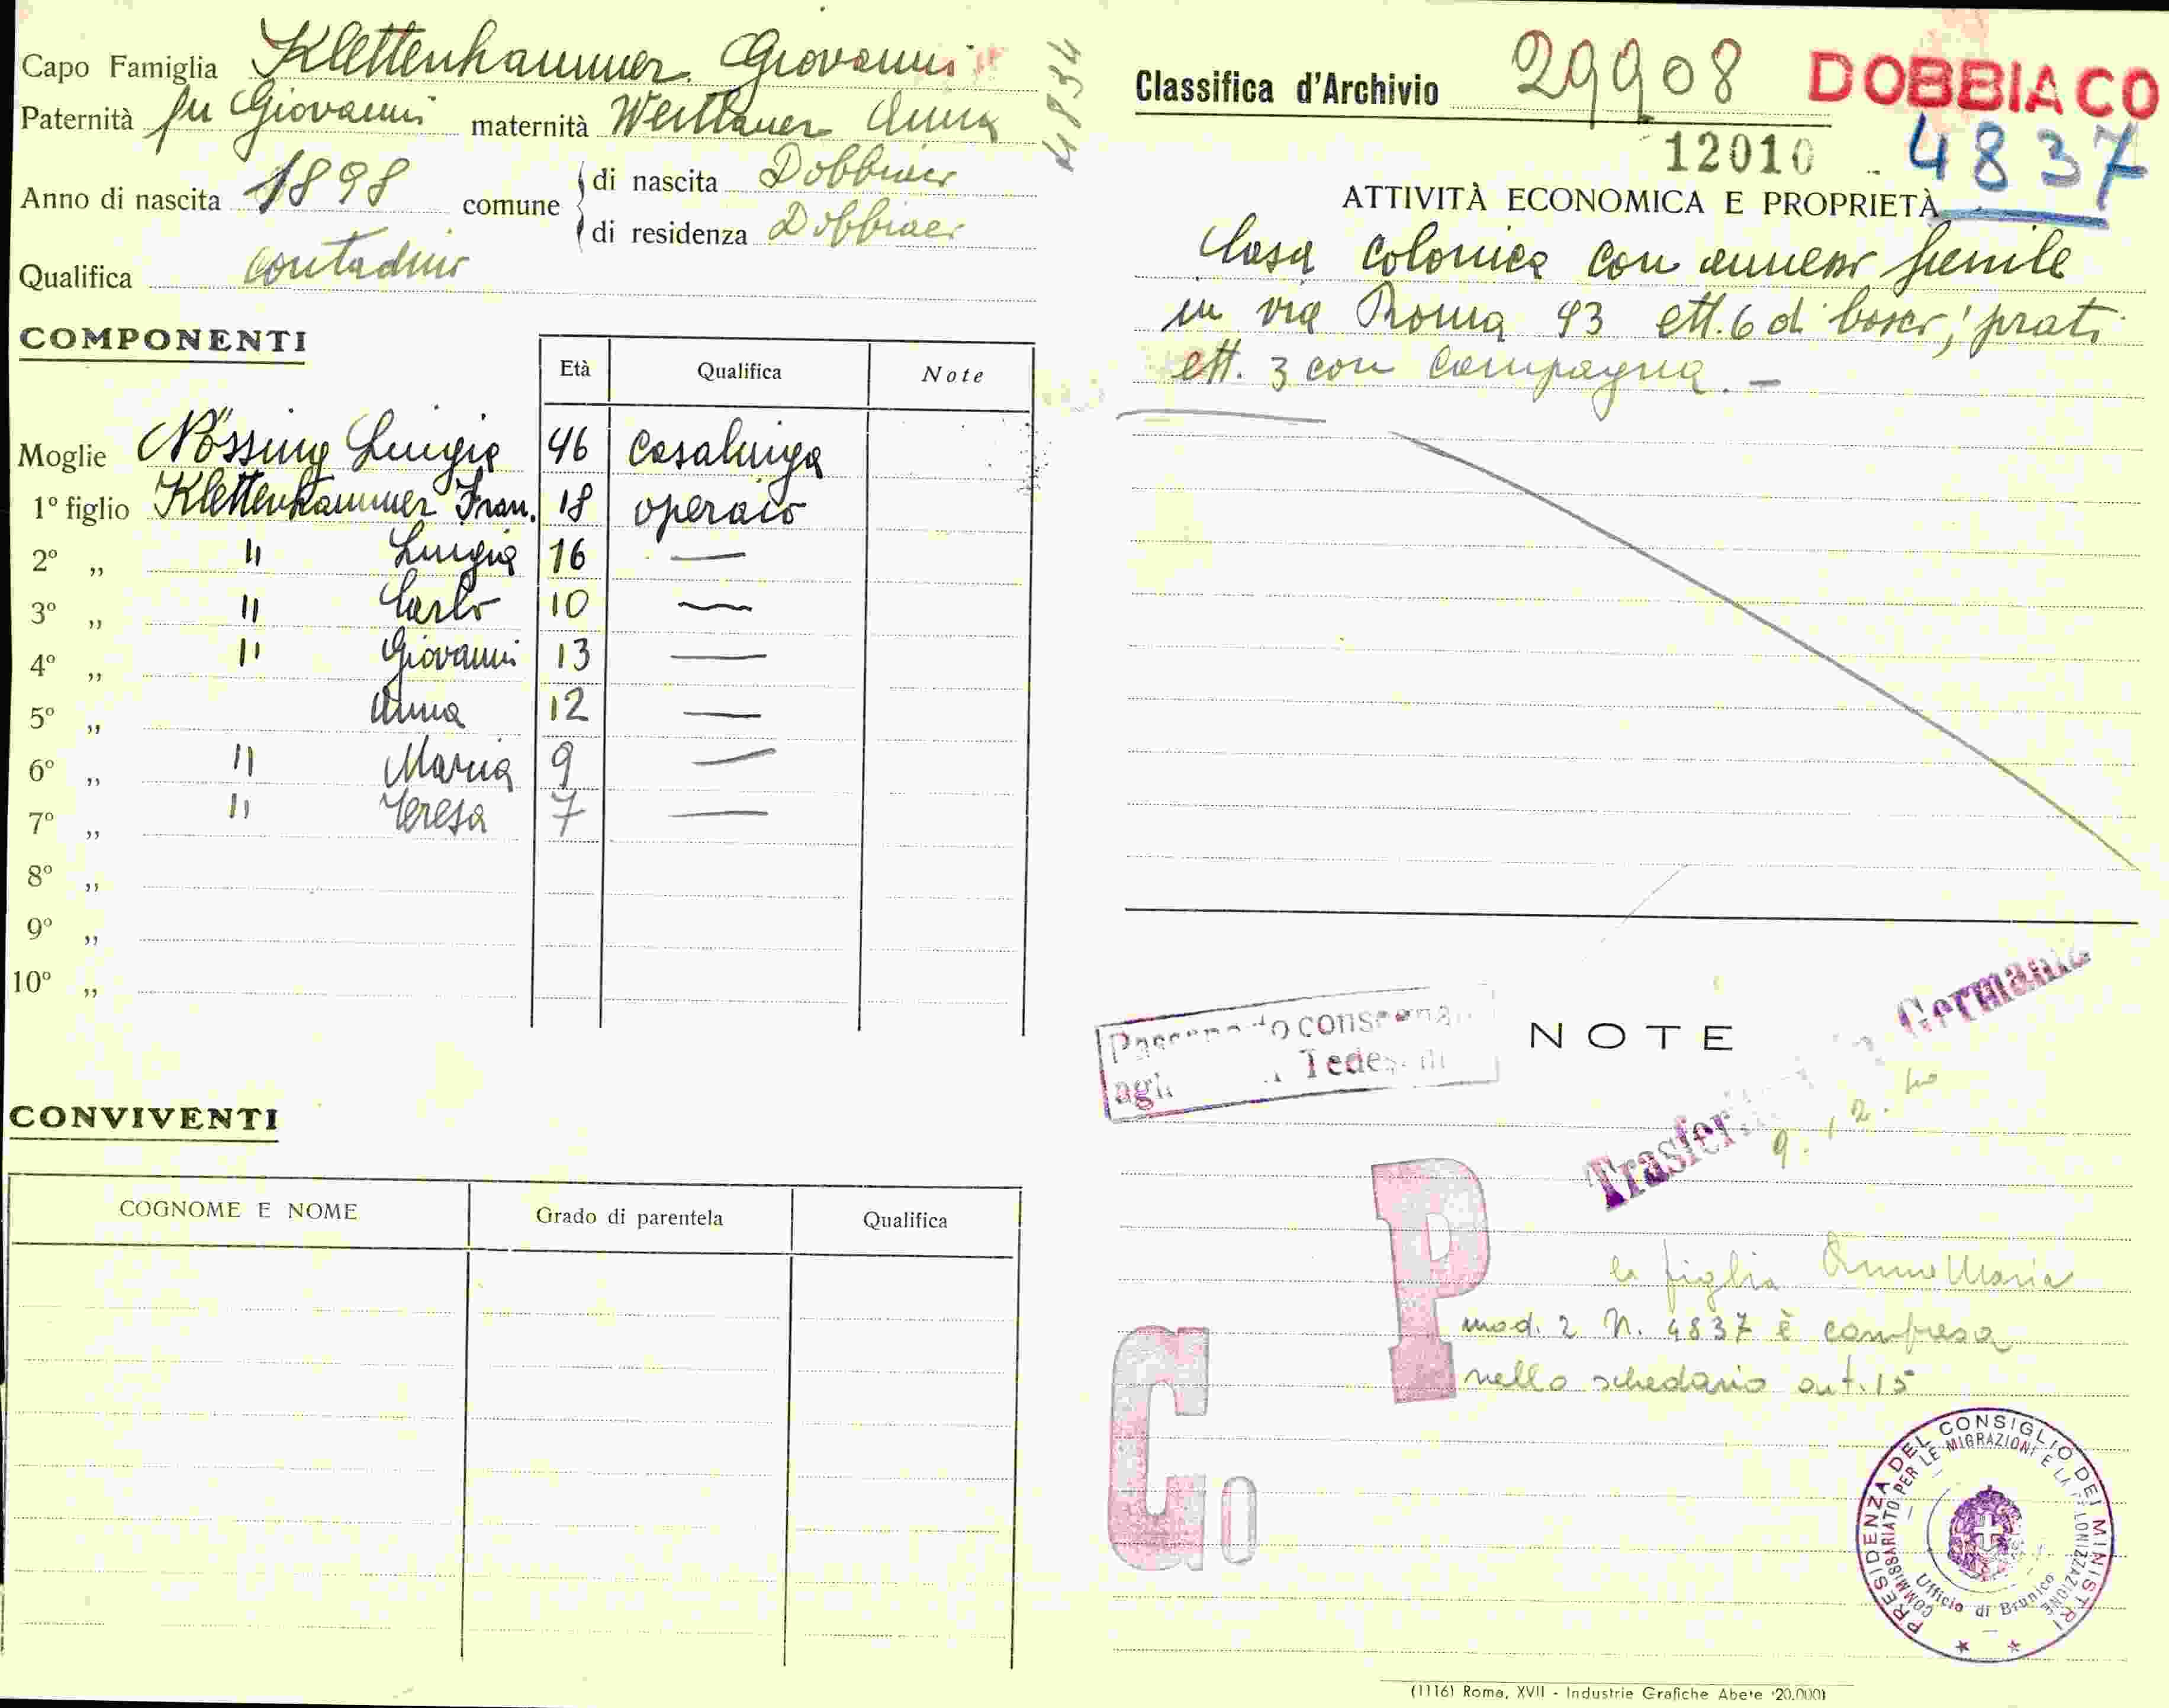 Capo Famiglia Klettenhammer Giovanni
Paternità fu Giovanni maternità Weitlaner Anna
Anno di nascita 1898 comune di nascita Dobbiaco
di residenza Dobbiaco
Qualifica contadino
COMPONENTI
Età Qualifica Note
Moglie Nössing Luigia 46 casalinga
1º figlio Klettenhammer Fran. 18 operaio
2º „ " Luigia 16 —
3º „ " Carlo 10 —
4º „ " Giovanni 13 —
5º „ Anna 12 —
6º „ " Maria 9 —
7º „ " Teresa 7 —
8º „
9º „
10º „
CONVIVENTI
COGNOME E NOME Grado di parentela Qualifica
Classifica d'Archivio 29908 DOBBIACO
12010 4837
ATTIVITÀ ECONOMICA E PROPRIETÀ
Casa colonica con annesso fienile
in via Roma 93 ett. 6 di bosco; prati
ett. 3 con campagna. —
NOTE
Tedeschi
Germania
la figlia Anna Maria
mod. 2 N. 4837 è compresa
nello schedario art. 15
P
C
PRESIDENZA DEL CONSIGLIO DEI MINISTRI
COMMISSARIATO PER LE MIGRAZIONI E LA COLONIZZAZIONE
Ufficio di Brunico
(1116) Roma, XVII - Industrie Grafiche Abete 20.000)